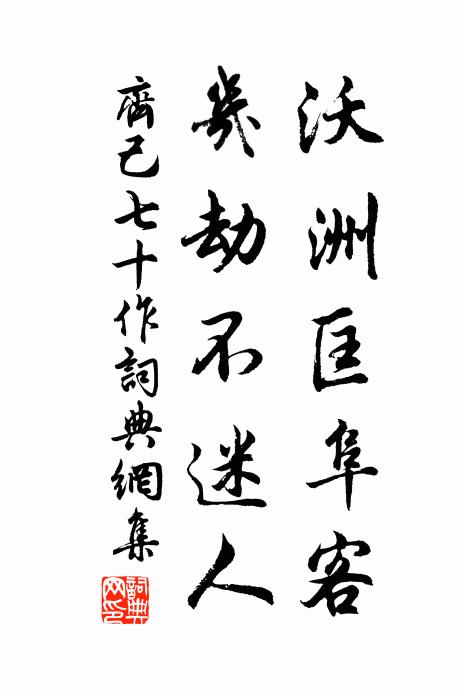 沃洲匡阜客
幾劫不迷人
齊己七十作詞典網集
詞典網印